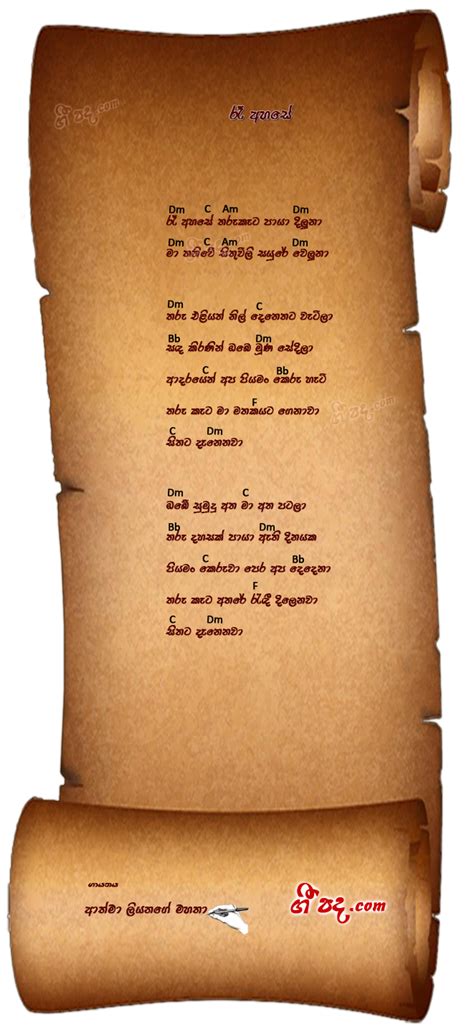 ගී පද.com
රෑ අහසේ
Dm C Am Dm
රෑ අහසේ තරුකැට පායා දිලුනා
Dm C Am Dm
මා තනිවේ සිතුවිලි සයුරේ වෙලුනා
Dm C
තරු එළියත් නිල් දෙනෙතට වැටිලා
Bb Dm
සඳ කිරණින් ඔබෙ මුණ සේදිලා
C Bb
ආදරයෙන් අප පියමං කෙරූ හැටි
F
තරු කැට මා මතකයට ගෙනාවා
C Dm
සිතට දැනෙනවා
Dm C
ඔබේ සුමුදු අත මා අත පටලා
Bb Dm
තරු දහසක් පායා ඇති දිනයක
C Bb
පියමං කෙරුවා පෙර අප දෙදෙනා
F
තරු කැට අතරේ රැඳී දිලෙනවා
C Dm
සිතට දැනෙනවා
ගායනය
ආත්මා ලියනගේ මහතා
ගී පද.com